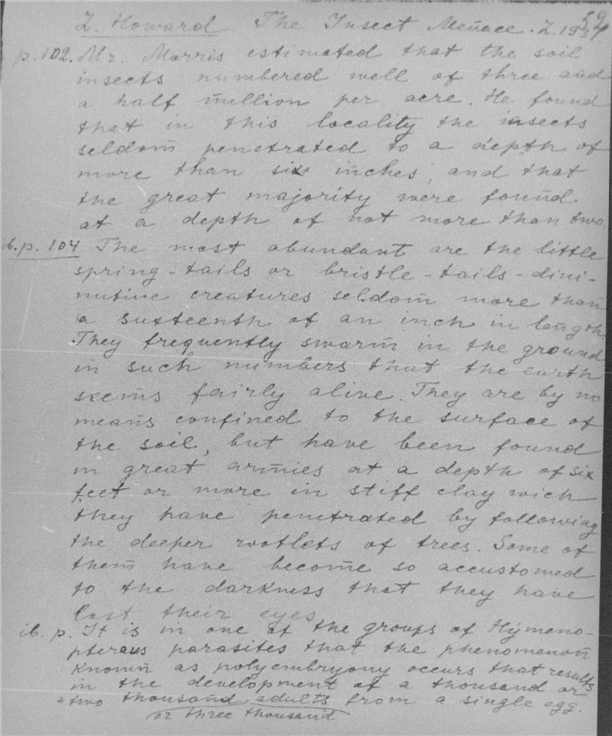 L. Howard The Insect Menace. L. 193
p. 102. Mr. Morris estimated that the soil
insects numbered well of three and
a half million per acre. He found
that in this locality the insects
seldom penetrated to a depth of
more than six inches, and that
the great majority were found
at a depth of not more than two
ib. p. 104 The most abundant are the little
spring-tails or bristle-tails - dimi-
nutive creatures seldom more than
a sixteenth of an inch in length
They frequently swarm in the ground
in such numbers that the earth
seems fairly alive. They are by no
means confined to the surface of
the soil, but have been found
in great armies at a depth of six
feet or more in stiff clay wich
they have penetrated by following
the deeper rootlets of trees. Some of
them have become so accustomed
to the darkness that they have
lost their eyes
ib. p. It is in one of the groups of Hymeno-
pterous parasites that the phenomenon
known as polyembryony occurs that results
in the development of a thousand or
two thousand adults from a single egg.
or three thousand